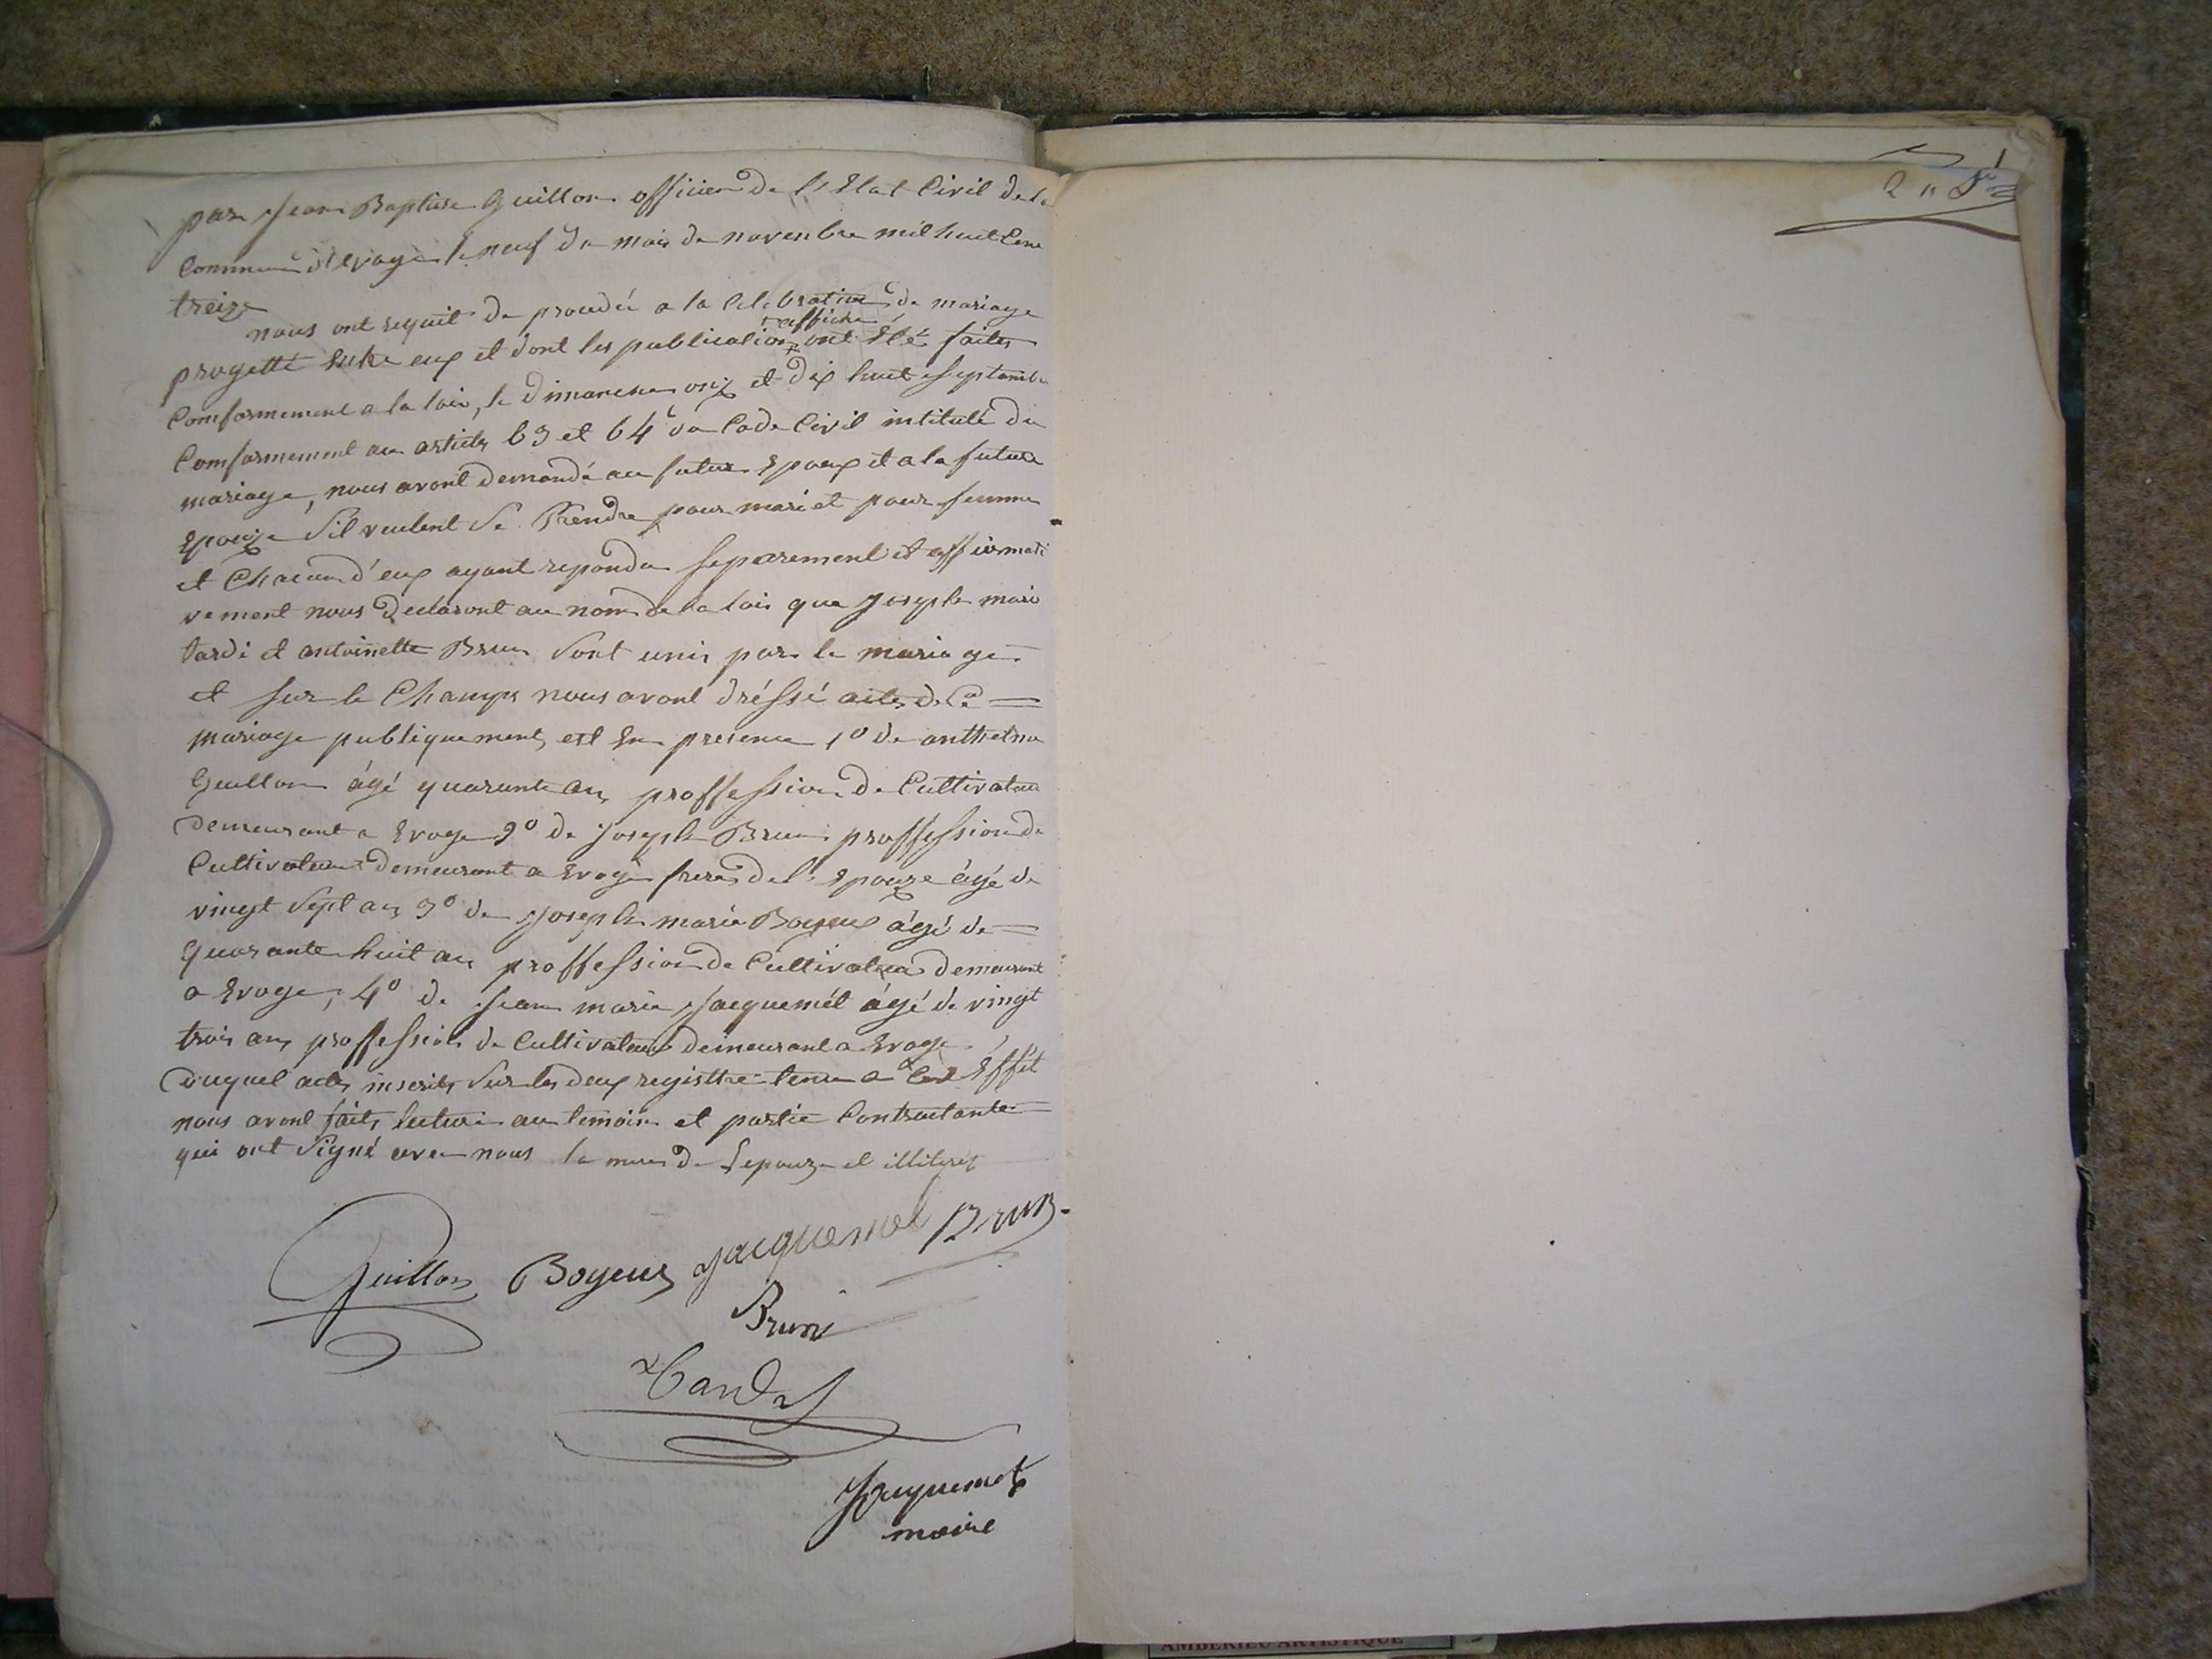 par Jean Baptiste Guillon officier de l'Etat Civil de la
Commune d'Evoge le neuf du mois de novenbre mil huit Cent
treize
nous ont requit de procedér a la Celebration de mariage
affiche
progetté Entre eux et dont les publication ont Eté faites
Comformement a la loix, le dimanche onze et dix huit septembre
Comformement au articles 63 et 64 du Code Civil intitulé du
mariage, nous avont demandé au futur Epoux et a la future
Epouze S'il veulent Se Prendre pour mari et pour femme
et Chacun d'eux ayant repondu separement et affirmati
vement nous declaront au nom de la loix que Joseph marie
tardi et antoinette Brun Sont unis par le mariage
et sur le Champs nous avont dréssé actes de Ce
mariage publiquement, est En presence 1o de anthelme
Guillon âgé quarante ans proffession de Cultivateur
demeurant a Evoge 2o de Joseph Brun proffession de
Cultivateur demeurant a Evoge frere de l'Epouze âgé de
vingt Sept ans 3o de Joseph marie Boyeux âgé de
quarante huit ans proffession de Cultivateur demeurant
a Evoge, 4o de Jean marie Jacquemét âgé de vingt
trois ans proffession de Cultivateur demeurant a Evoge
duquel actes inscrits Sur les deux registtre tenu a Cet Effét
nous avont faits lecture au temoin et partie Contractante
qui ont Signé avec nous la mere de l'epouze et illiteret
Guillon Boyeux Jacquemet Brun
Brun
tardy
Jacquemet
maire
AMBERIEU ARTISTIQUE